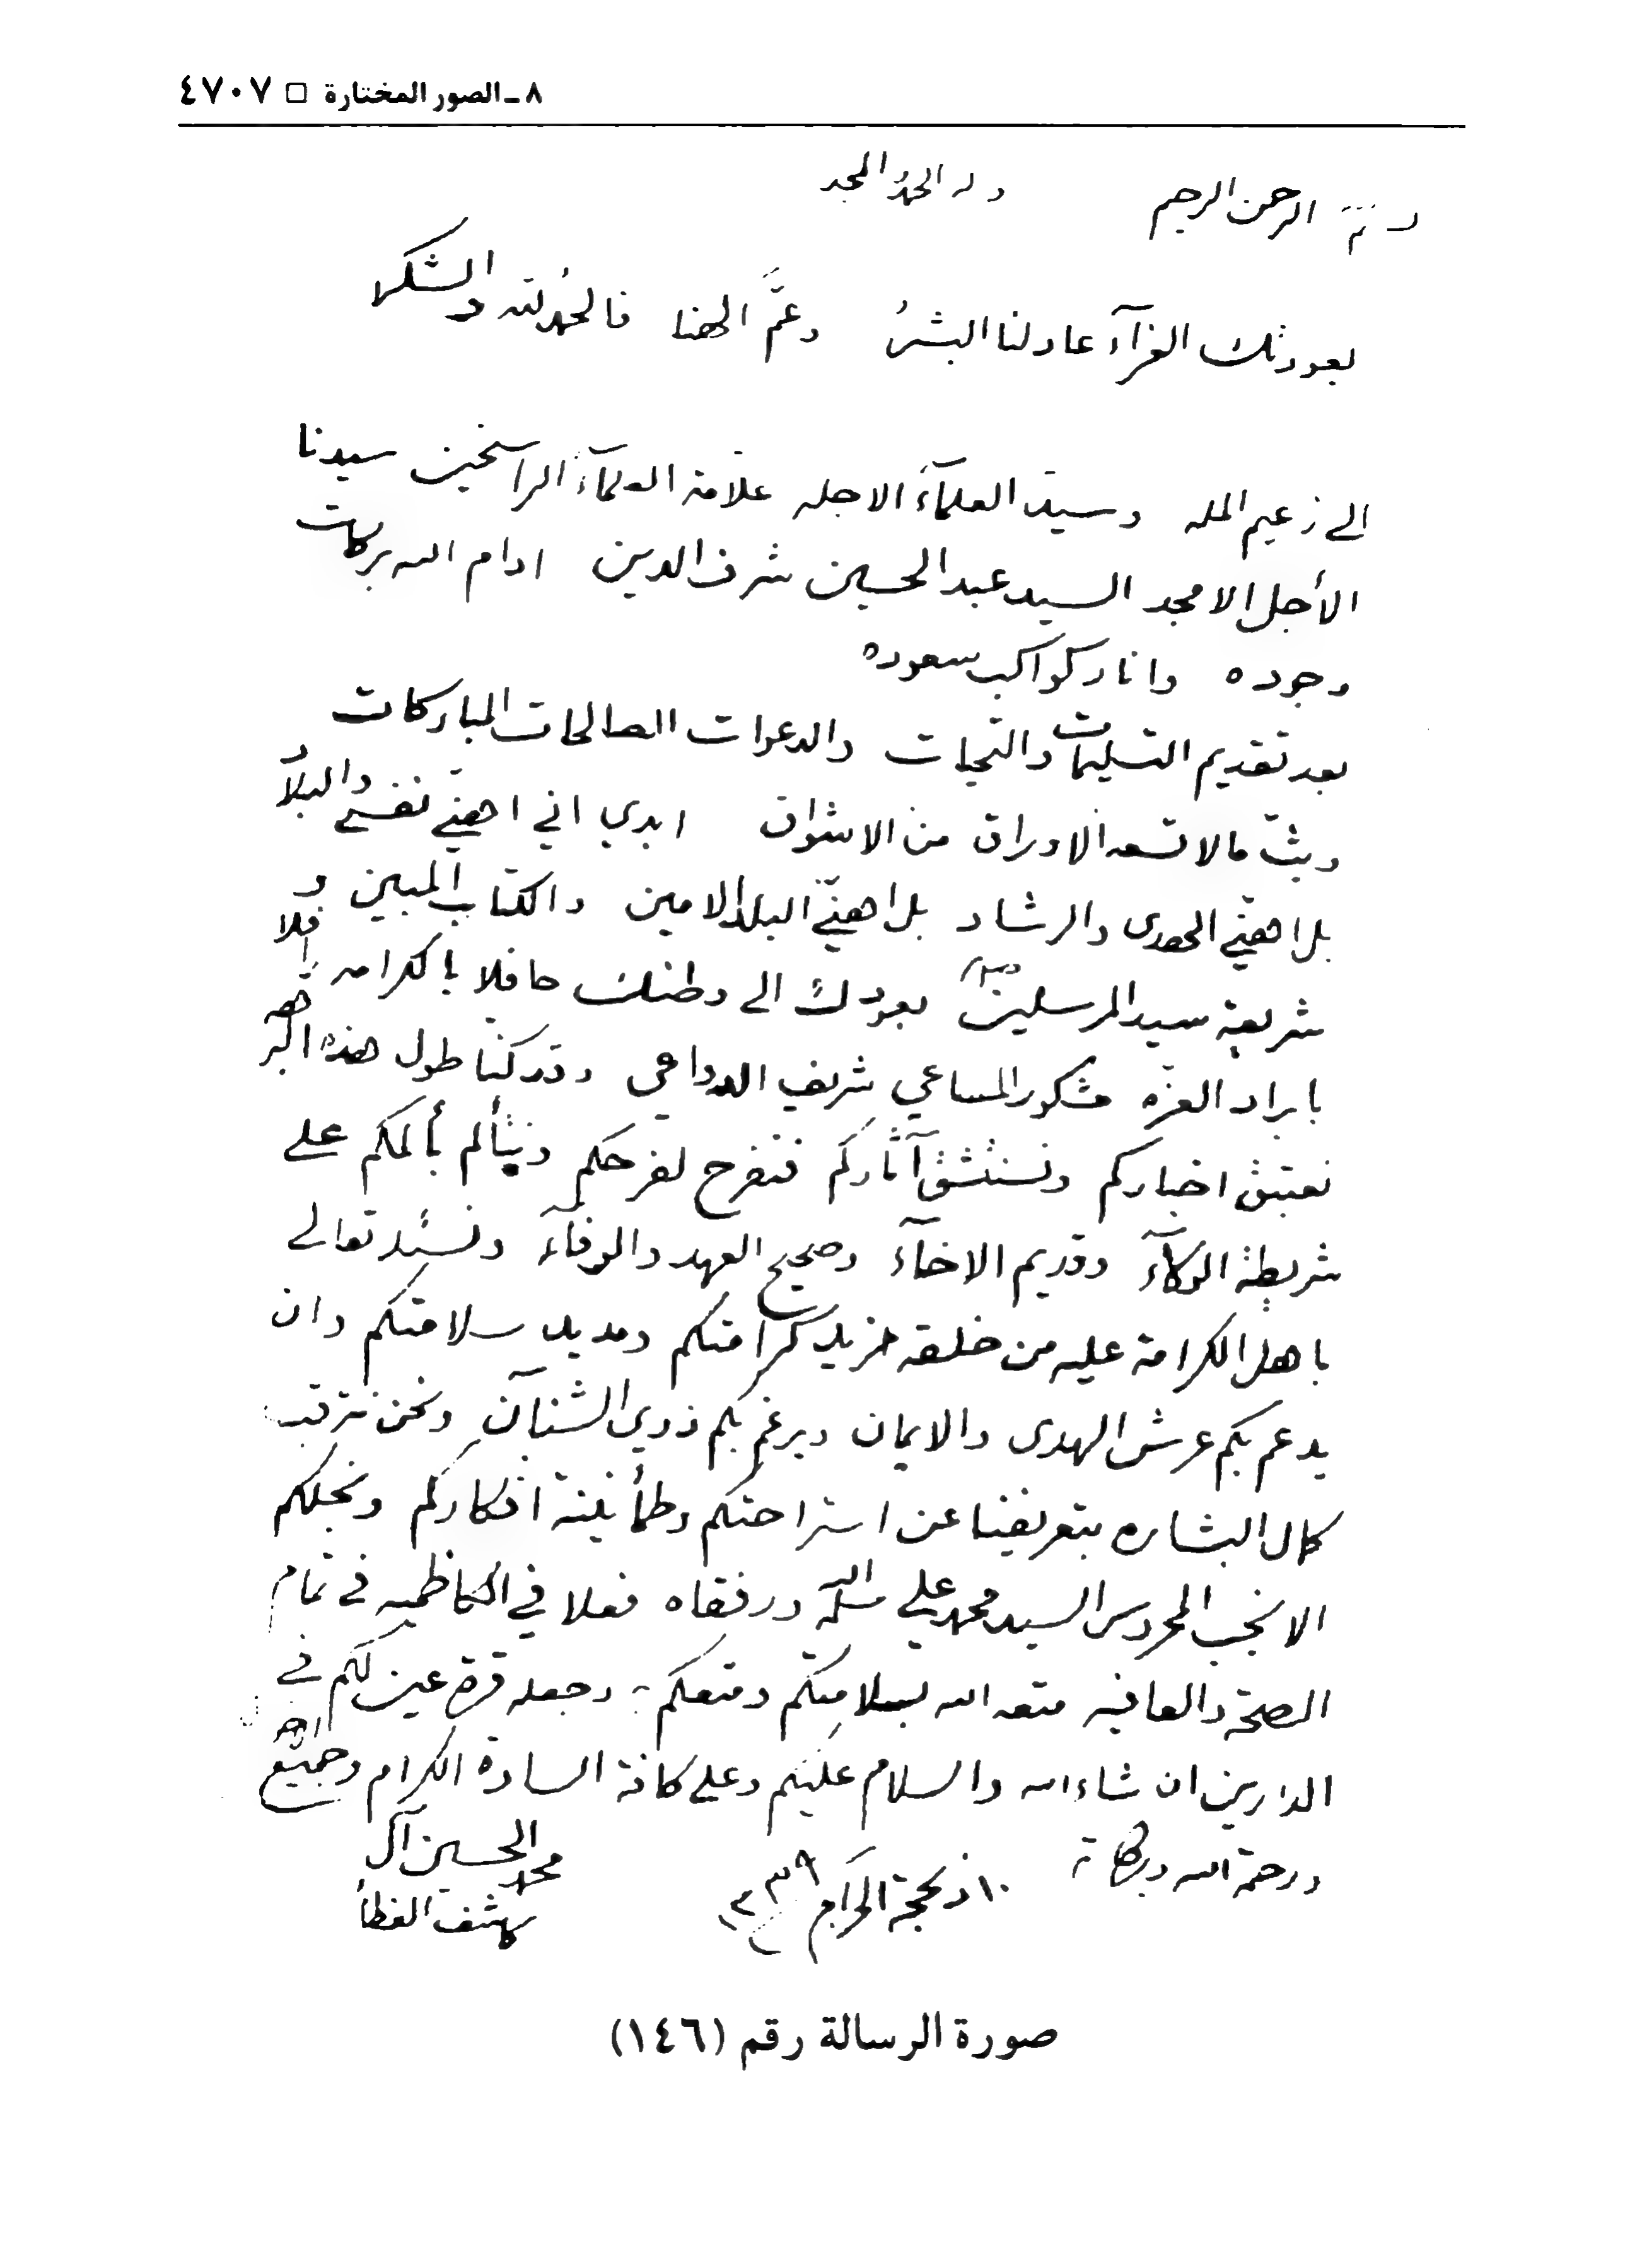 ٨ ـ الصور المختارة □ ٤٧٠٧
بسم الله الرحمن الرحيم وله الحمد والمجد
بعودتك الغرآء عاد لنا البشرُ وعمَّ الهنا فالحمد لله والشكر
الى زعيم المله وسيد العلمآء الاجله علامة العلمآء الراسخين سيدنا
الأجل الامجد السيد عبد الحسين شرف الدين ادام الله بركات
وجوده وانار كواكب سعوده
بعد تقديم التسليمات والتحيات والدعوات الصالحات المباركات
وبثّ مالا تسعه الاوراق من الاشواق ابدي اني اهنّي نفسي والبلاد
بل اهنّي الهدى والرشاد بل اهنّي البلد الامين والكتاب المبين و
شريعة سيد المرسلين بعودك الى وطنك حافلا بالكرامه رافلا
بابراد العزّه مشكور المساعي شريف الدواعي وقد كنا طول هذه البرهه
نعتبق اخباركم ونستنشق آثاركم فنفرح لفرحكم ونتألم بألمكم على
شريطة الولاء وقديم الاخآء وصحيح العهد والوفآء ونسئله تعالى
باهل الكرامة عليه من خلقه مزيد كرامتكم ومديد سلامتكم وان
يدعم بكم عرش الهدى والايمان ويرغم بكم ذوي الشنآن ونحن نترقب
كمال البشاره بتعريفنا عن استراحتكم وطمأنينة افكاركم ونجلكم
الانجب المحروس السيد محمد علي سلمه الله ورفقاه فعلا في الكاظميه في تمام
الصحة والعافيه متعه الله بسلامتكم ومتعكم به وجعله قرة عين لكم في
الدارين ان شاء الله والسلام عليكم وعلى كافة السادة الكرام وجميع
ورحمة الله وبركاته ١٠ ذ حجة الحرام ١٣٣٩
محمد الحسين آل
كاشف الغطأ
صورة الرسالة رقم (١٤٦)